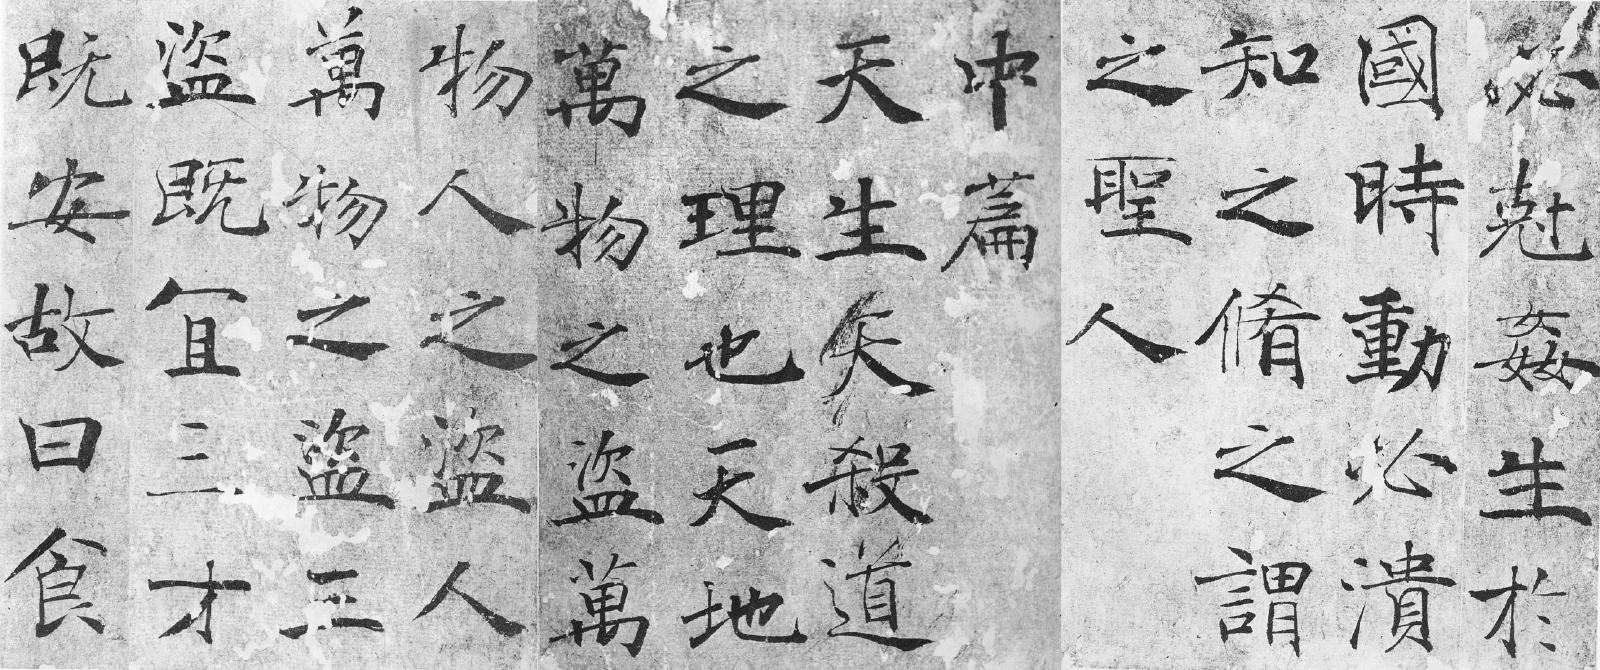 必剋姦生於
國時動必潰
知之脩之謂
之聖人
中篇
天生天殺道
之理也天地
萬物之盜萬
物人之盜人
萬物之盜三
盜既宜三才
既安故曰食